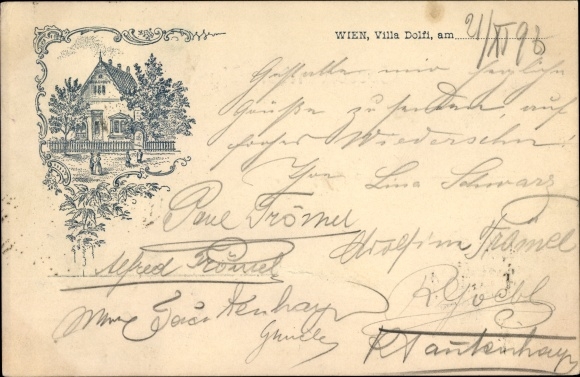 WIEN, Villa Dolfi, am 21/XI 96
Gestatte mir herzliche
Grüße zu senden, auf
frohes Wiedersehen!
Ihre Lina Schwarz
Paul Trömel
Adolfine Trömel
Alfred Trömel
R. Göbl
Tautenhayn
K Tautenhayn